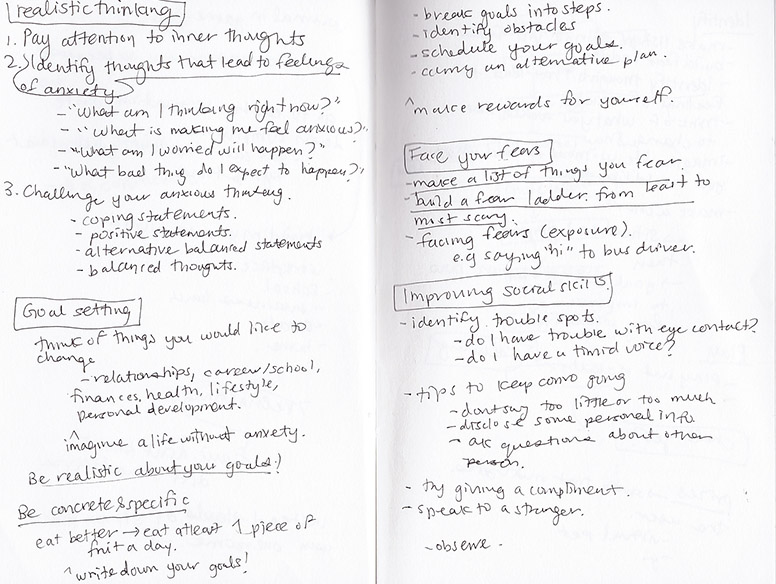 realistic thinking
1. Pay attention to inner thoughts
2. Identify thoughts that lead to feelings
of anxiety
- "What am I thinking right now?"
- "What is making me feel anxious?"
- "What am I worried will happen?"
- "What bad thing do I expect to happen?"
3. Challenge your anxious thinking.
- coping statements.
- positive statements.
- alternative balanced statements
- balanced thoughts.
Goal setting
think of things you would like to
change
- relationships, career/school,
finances, health, lifestyle,
personal development.
^imagine a life without anxiety.
Be realistic about your goals!
Be concrete & specific
eat better → eat atleast 1 piece of
fruit a day.
^write down your goals!
- break goals into steps.
- identify obstacles
- schedule your goals.
- carry an alternative plan.
^make rewards for yourself.
Face your fears
- make a list of things you fear.
- build a fear ladder. from least to
most scary.
- facing fears (exposure).
e.g saying "hi" to bus driver.
Improving social skills.
- identify trouble spots.
- do I have trouble with eye contact?
- do I have a timid voice?
- tips to keep convo going
- dont say too little or too much
- disclose some personal info
- ask questions about other
person.
- try giving a compliment.
- speak to a stranger.
- observe.